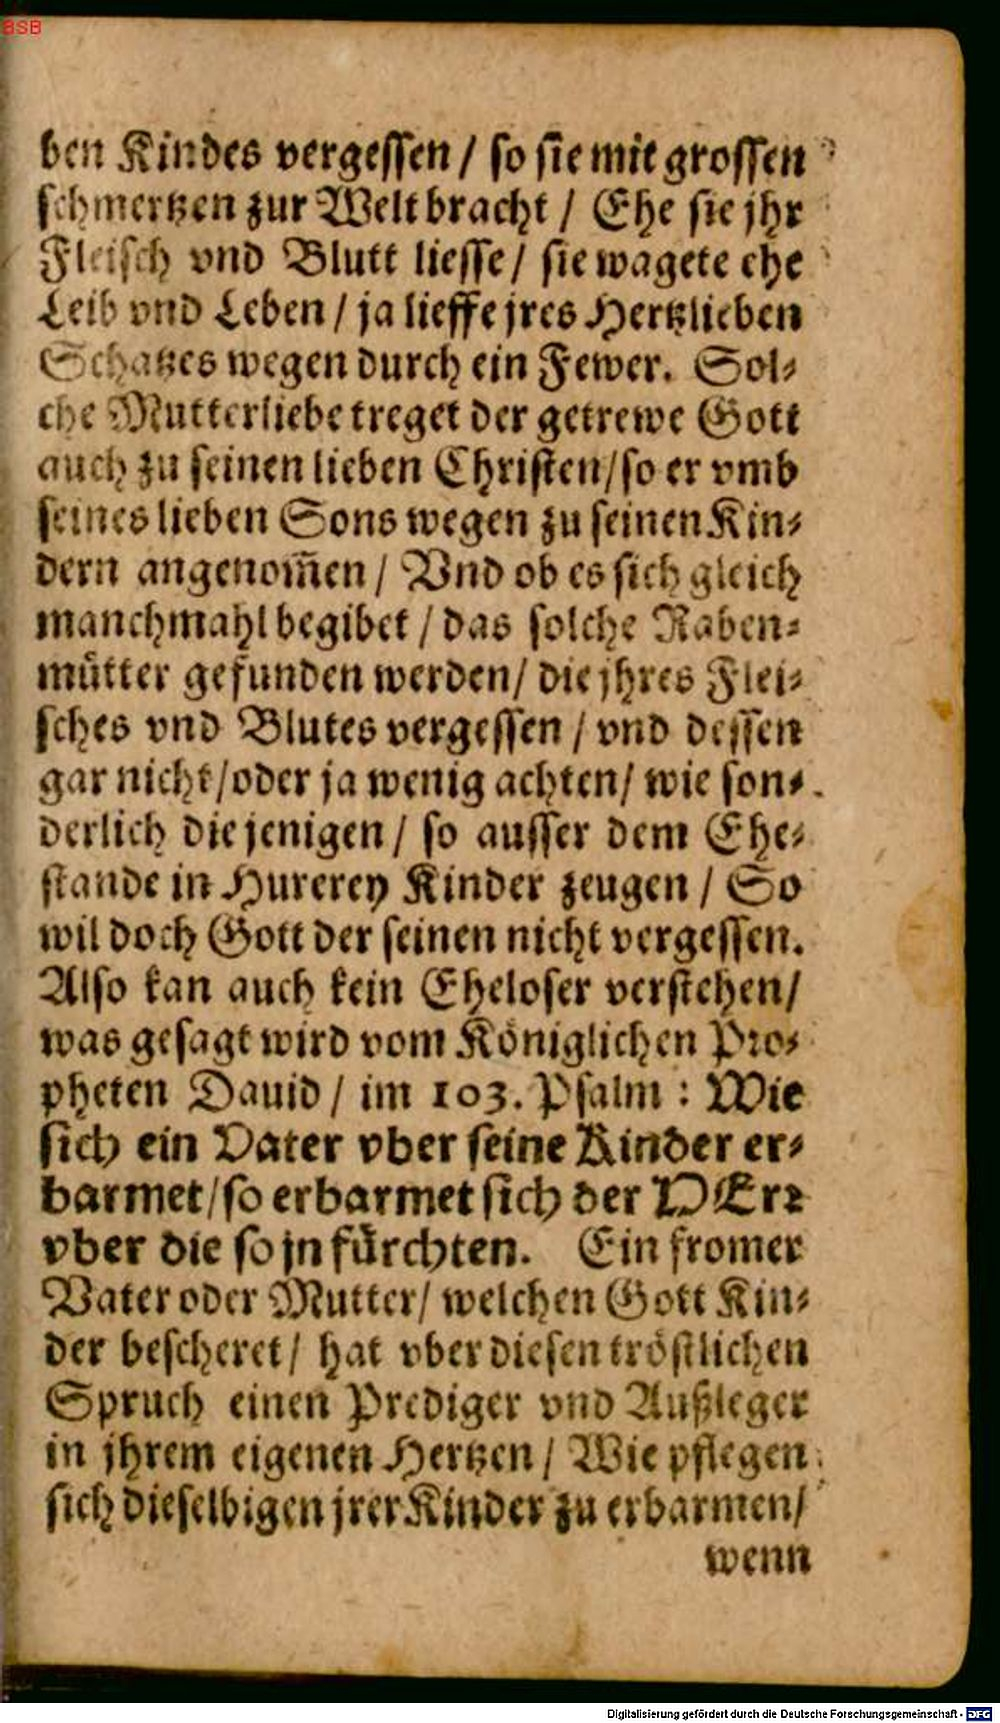 BSB
ben Kindes vergessen / so sie mit grossen
schmertzen zur Welt bracht / Ehe sie jhr
Fleisch vnd Blutt liesse / sie wagete ehe
Leib vnd Leben / ja lieffe jres Hertzlieben
Schatzes wegen durch ein Fewer. Sol-
che Mutterliebe treget der getrewe Gott
auch zu seinen lieben Christen/so er vmb
seines lieben Sons wegen zu seinen Kin-
dern angenom̃en / Vnd ob es sich gleich
manchmahl begibet / das solche Raben-
mütter gefunden werden/ die jhres Flei-
sches vnd Blutes vergessen / vnd dessen
gar nicht/oder ja wenig achten/ wie son-
derlich die jenigen / so ausser dem Ehe-
stande in Hurerey Kinder zeugen / So
wil doch Gott der seinen nicht vergessen.
Also kan auch kein Eheloser verstehen/
was gesagt wird vom Königlichen Pro-
pheten Dauid / im 103. Psalm : Wie
sich ein Vater vber seine Kinder er-
barmet/so erbarmet sich der HErr
vber die so jn fürchten. Ein fromer
Vater oder Mutter/ welchen Gott Kin-
der bescheret/ hat vber diesen tröstlichen
Spruch einen Prediger vnd Außleger
in jhrem eigenen Hertzen / Wie pflegen
sich dieselbigen jrer Kinder zu erbarmen/
wenn
Digitalisierung gefördert durch die Deutsche Forschungsgemeinschaft - DFG